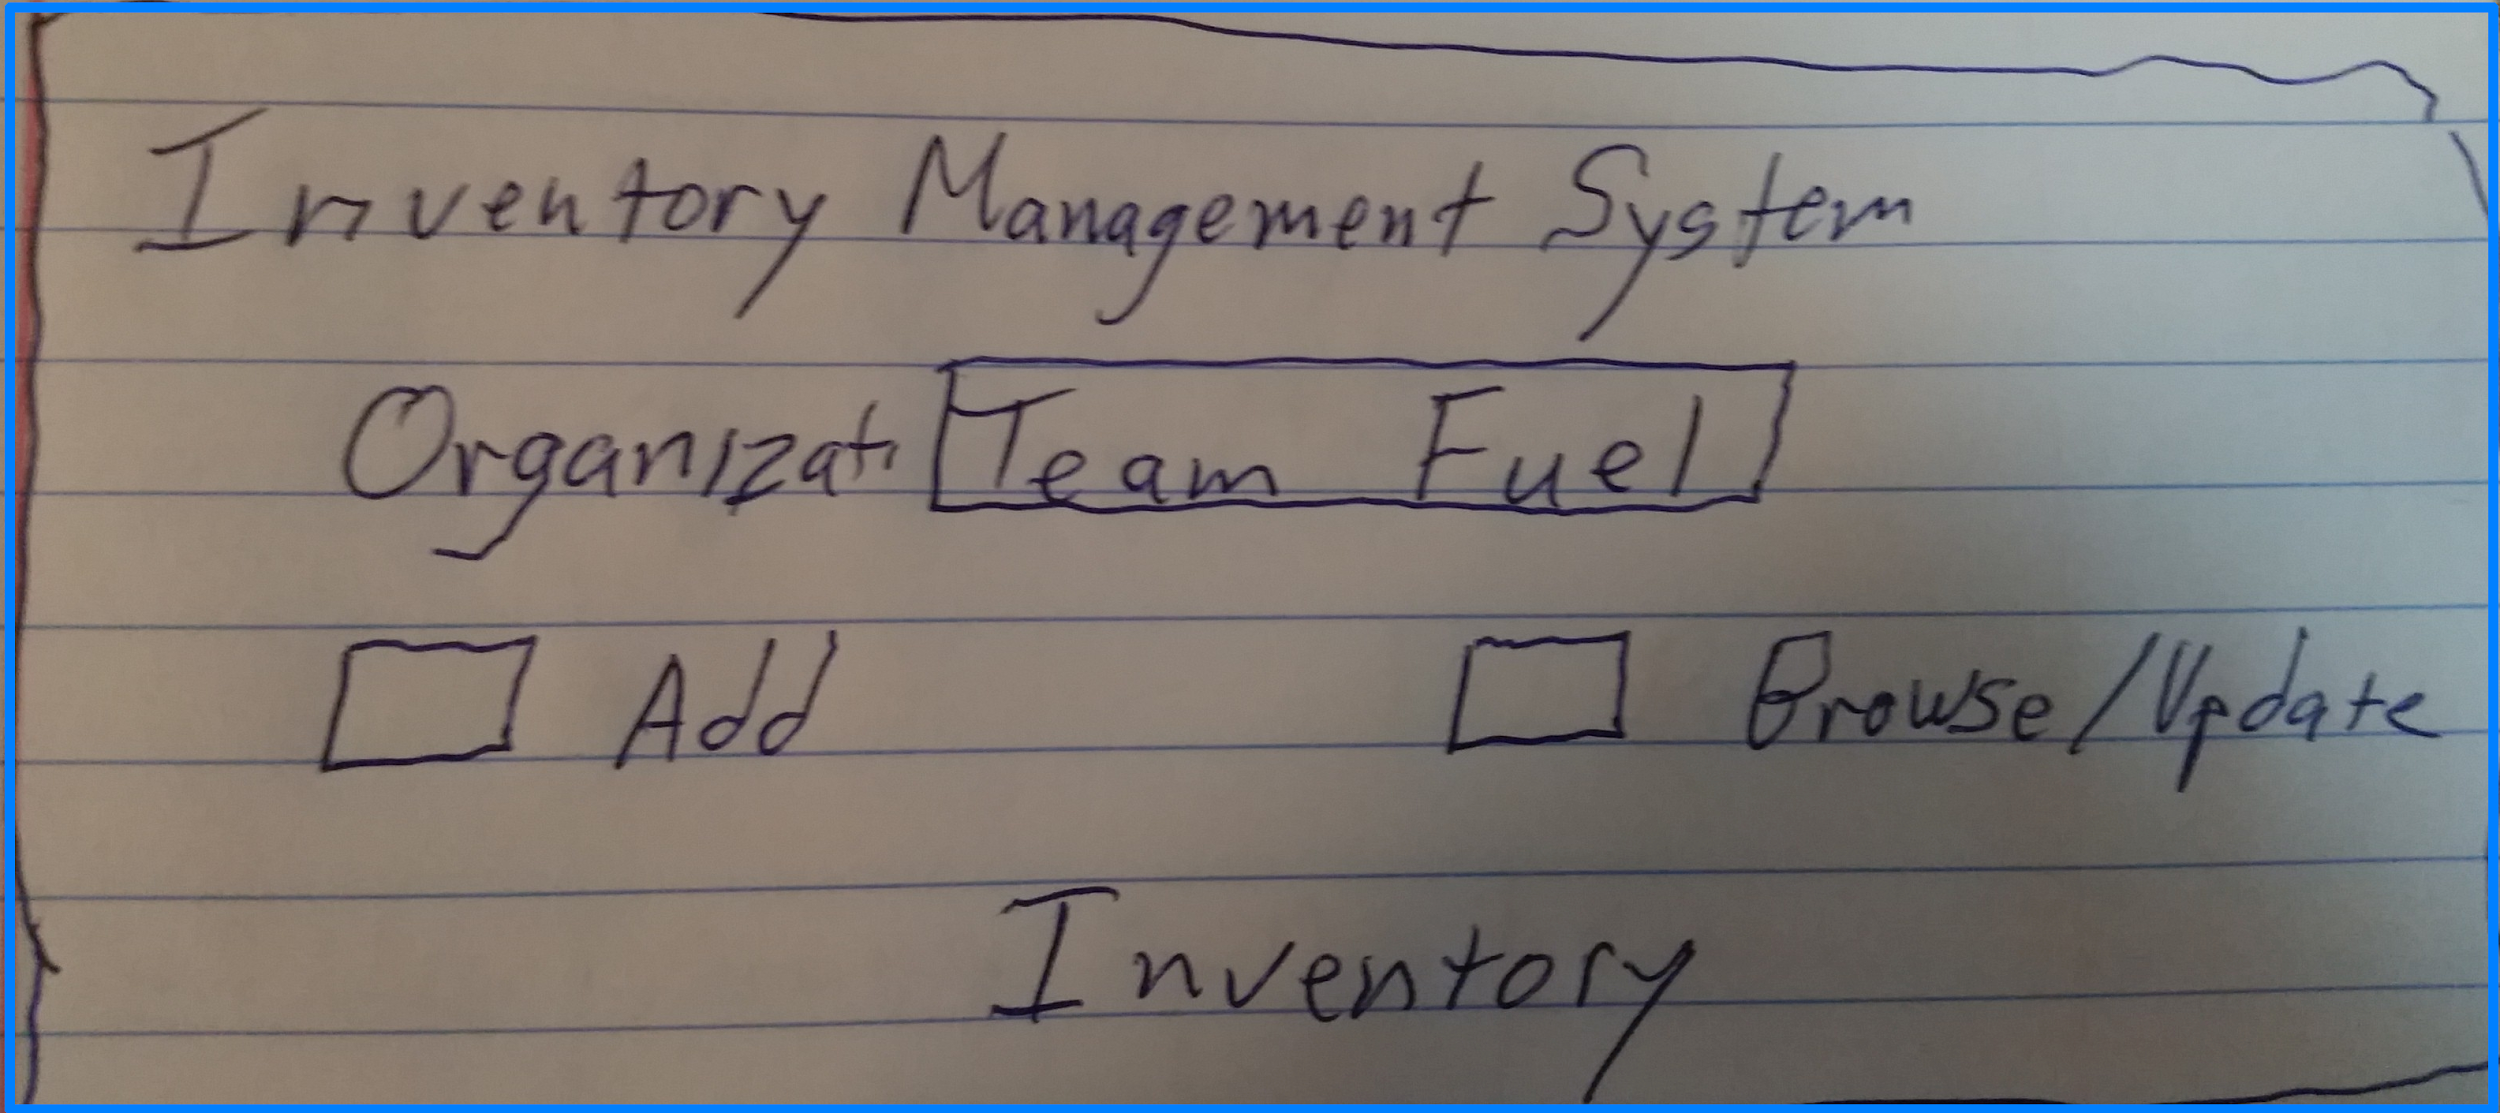 Inventory Management System
Organizati Team Fuel
Add Browse/Update
Inventory